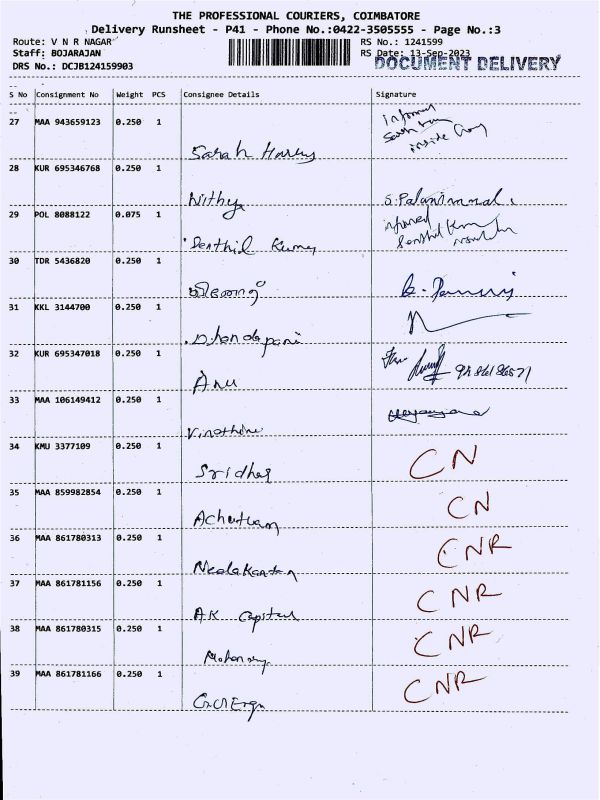 THE PROFESSIONAL COURIERS, COIMBATORE
Delivery Runsheet - P41 - Phone No.:0422-3505555 - Page No.:3
Route: V N R NAGAR RS No.: 1241599
Staff: BOJARAJAN RS Date: 13-Sep-2023
DRS No.: DCJB124159903 DOCUMENT DELIVERY
S No Consignment No Weight PCS Consignee Details Signature
27 MAA 943659123 0.250 1
Sarah
28 KUR 695346768 0.250 1
Nithya S.Palanimmal
29 POL 8088122 0.075 1
Senthil Kumar
30 TDR 5436820 0.250 1
31 KKL 3144700 0.250 1
Dhandapani
32 KUR 695347018 0.250 1
Anu
33 MAA 106149412 0.250 1
34 KMU 3377109 0.250 1 CN
Sridhar
35 MAA 859982854 0.250 1 CN
36 MAA 861780313 0.250 1 CNR
Neelakantan
37 MAA 861781156 0.250 1 CNR
AK Capital
38 MAA 861780315 0.250 1 CNR
39 MAA 861781166 0.250 1 CNR